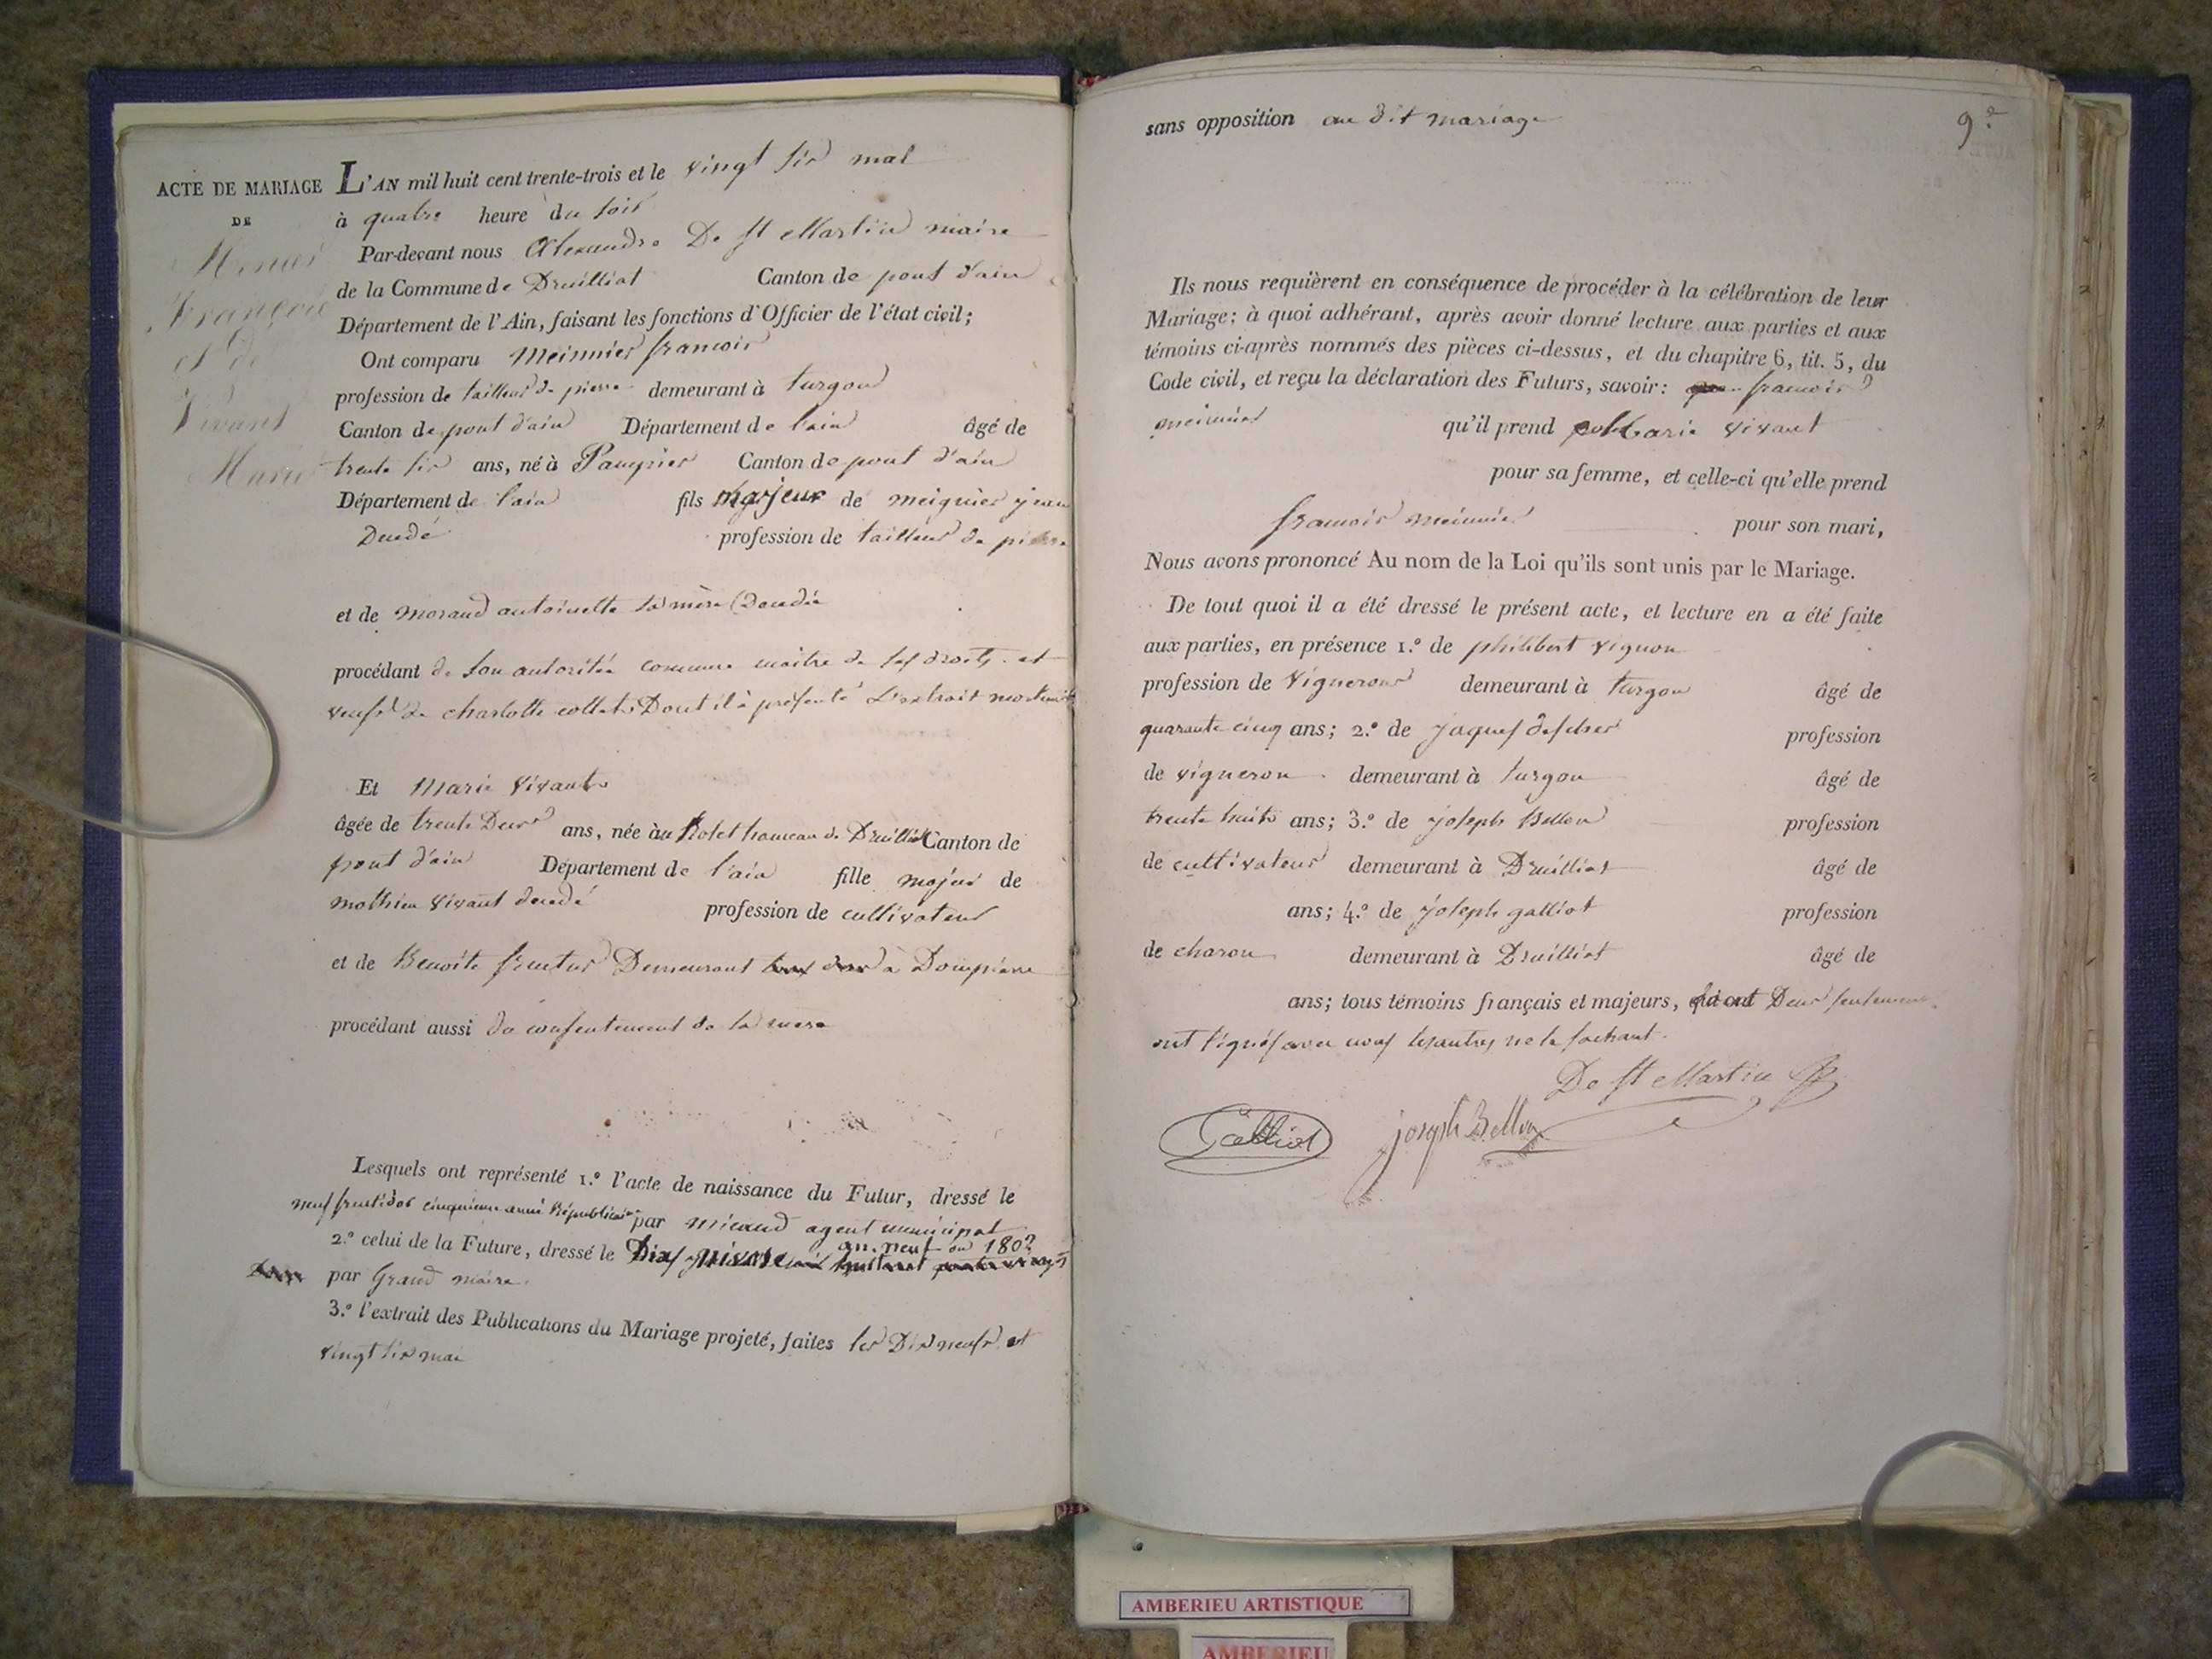 ACTE DE MARIAGE
DE
Menier
François
et de
Vivant
Marie
L'AN mil huit cent trente-trois et le vingt six mai
à quatre heure du soir
Par-devant nous Alexandre De St Martin maire
de la Commune de Druilliat Canton de pont d'ain
Département de l'Ain, faisant les fonctions d'Officier de l'état civil;
Ont comparu Meinnier francois
profession de tailleur de pierre demeurant à turgon
Canton de pont d'ain Département de l'ain âgé de
trente six ans, né à Canton de pont d'ain
Département de l'ain fils majeur de meignier jean
Decedé profession de tailleur de pierre
et de morand antoinette sa mère Decedée
procédant de son autoritée comme maitre de ses droits et
veuf de charlotte Dont il à présenté L'extrait mortuaire
Et Marie Vivant
âgée de trente Deux ans, née au hameau de Druilliat Canton de
pont d'ain Département de l'ain fille majeur de
mathieu Vivant decedé profession de cultivateur
et de Benoite Demeurant à Dompierre
procédant aussi du consentement de sa mere
Lesquels ont représenté 1.º l'acte de naissance du Futur, dressé le
neuf fructidor cinquieme anné Républicaine par micaud agent municipal
2.º celui de la Future, dressé le Dix nivose an neuf ou 180?
par Grand maire.
3.º l'extrait des Publications du Mariage projeté, faites les Dix neuf et
vingt six mai
9e
sans opposition au dit mariage
Ils nous requièrent en conséquence de procéder à la célébration de leur
Mariage; à quoi adhérant, après avoir donné lecture aux parties et aux
témoins ci-après nommés des pièces ci-dessus, et du chapitre 6, tit. 5, du
Code civil, et reçu la déclaration des Futurs, savoir: francois
meinnier qu'il prend Marie Vivant
pour sa femme, et celle-ci qu'elle prend
francois meinnier pour son mari,
Nous avons prononcé Au nom de la Loi qu'ils sont unis par le Mariage.
De tout quoi il a été dressé le présent acte, et lecture en a été faite
aux parties, en présence 1.º de philibert vignon
profession de Vigneron demeurant à turgon âgé de
quarante cinq ans; 2.º de jaques profession
de vigneron demeurant à turgon âgé de
trente huit ans; 3.º de joseph Bellon profession
de cultivateur demeurant à Druilliat âgé de
ans; 4.º de joseph galliot profession
de charon demeurant à Druilliat âgé de
ans; tous témoins français et majeurs, Deux seulement
ont signés avec nous les autres ne le sachant.
De St Martin
Galliot joseph Bellon
AMBERIEU ARTISTIQUE
AMBERIEU